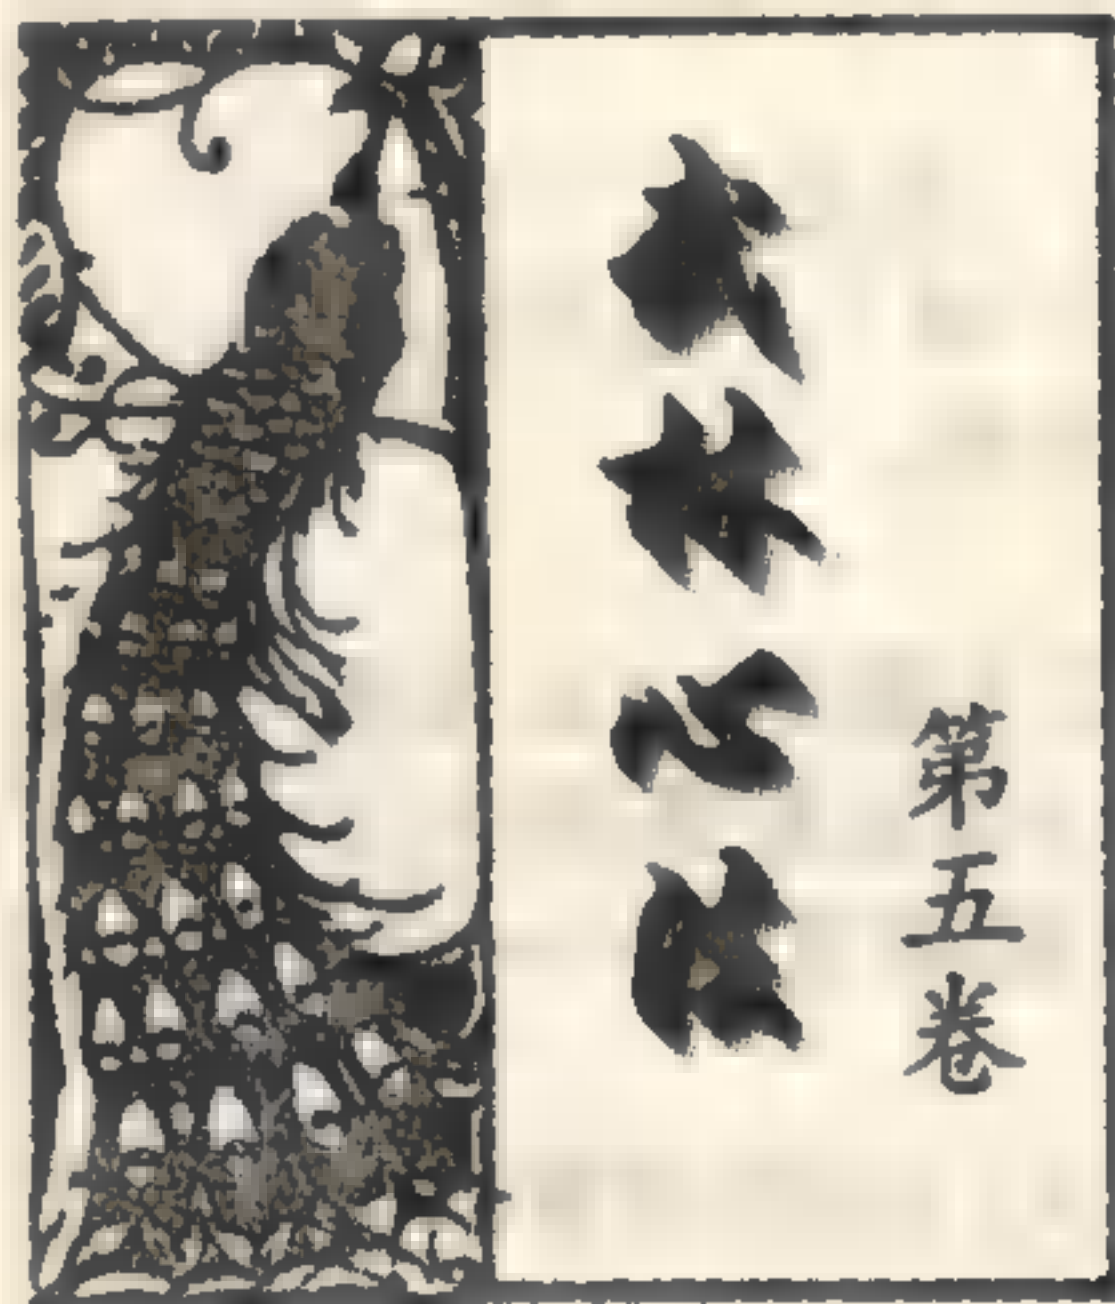 武林心法
第五卷